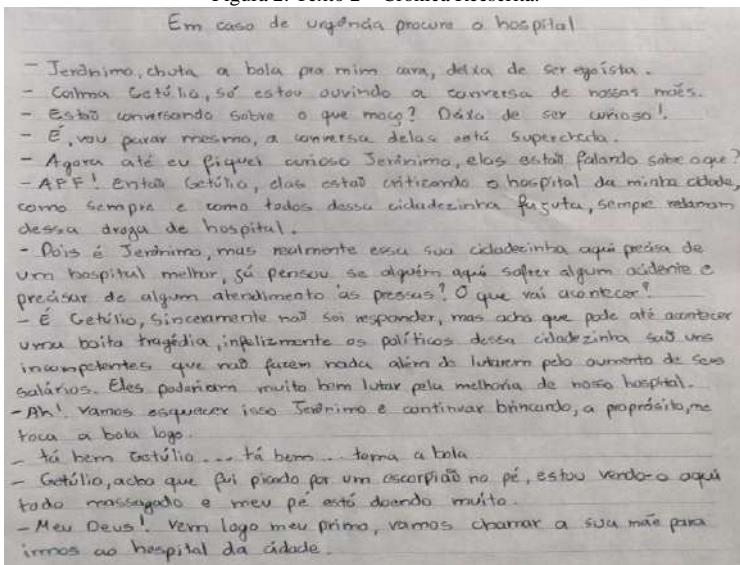 Figura 2: Texto 2 – Crônica Reescrita.
Em caso de urgência procure o hospital
- Jerônimo, chuta a bola pra mim cara, deixa de ser egoísta.
- Calma Getúlio, só estou ouvindo a conversa de nossas mães.
- Estão conversando sobre o que moço? Dexa de ser curioso!.
- É, vou parar mesmo, a conversa delas está superchata.
- Agora até eu fiquei curioso Jerônimo, elas estão falando sobre oque?
- AFF! Então Getúlio, elas estão criticando o hospital da minha cidade,
como sempre e como todos dessa cidadezinha sempre reclamam
dessa droga de hospital.
- Pois é Jerônimo, mas realmente essa sua cidadezinha aqui precisa de
um hospital melhor, já pensou se alguém aqui sofrer algum acidente e
precisar de algum atendimento as pressas? O que vai acontecer?
- É Getúlio, sinceramente não sei responder, mas acho que pode até acontecer
uma baita tragédia, infelizmente os políticos dessa cidadezinha são uns
incompetentes que não fazem nada além de lutarem pelo aumento de seus
salários. Eles poderiam muito bem lutar pela melhoria de nosso hospital.
- Ah! Vamos esquecer isso Jerônimo e continuar brincando, a proprósito, me
toca a bola logo.
- tá bem Getúlio... tá bem... toma a bola.
- Getúlio, acho que fui picado por um escorpião no pé, estou vendo-o aqui
todo massagado e meu pé está doendo muito.
- Meu Deus! Vem logo meu primo, vamos chamar a sua mãe para
irmos ao hospital da cidade.